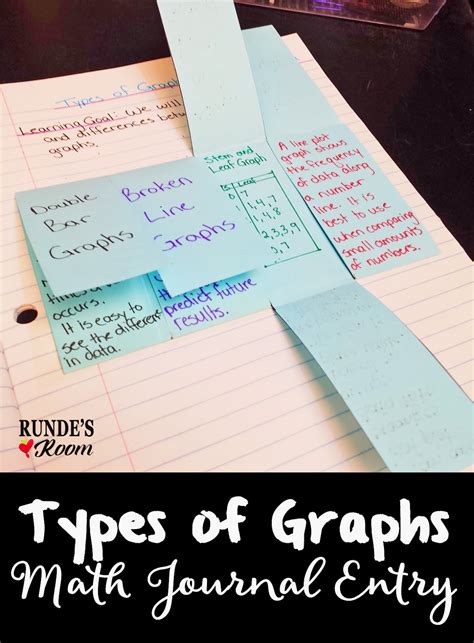 Types of Graph
Learning Goal: We will
and differences betw
graphs.
Double
Bar
Graphs
Broken
Line
Graphs
occurs.
It is easy to
see the differen
in data.
predict future
results.
Stem and
Leaf Graph
Leaf
0
7
1, 4, 7
1, 4, 8
2, 3, 3, 9
0, 7
A line plot
graph shows
the frequency
of data along
a number
line. It is
best to use
when comparing
small amounts
of numbers.
RUNDE'S
Room
Types of Graphs
Math Journal Entry